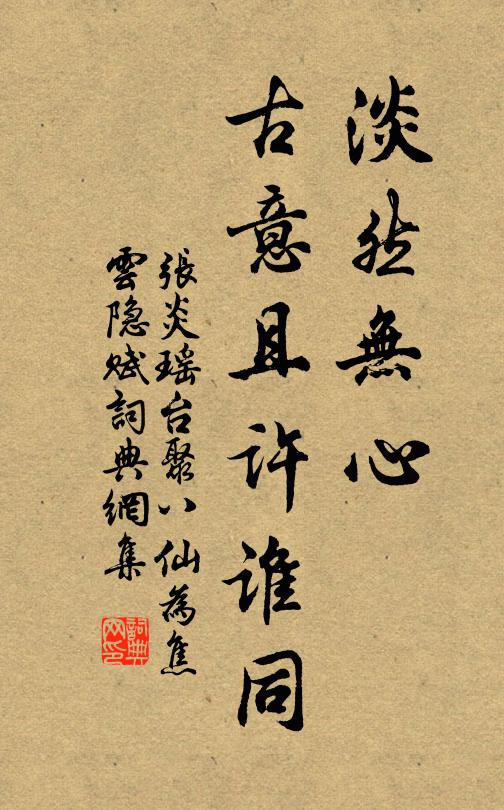 淡然無心
古意且許誰同
張炎瑶台聚八仙為焦
雲隐賦詞典網集
詞典
网印